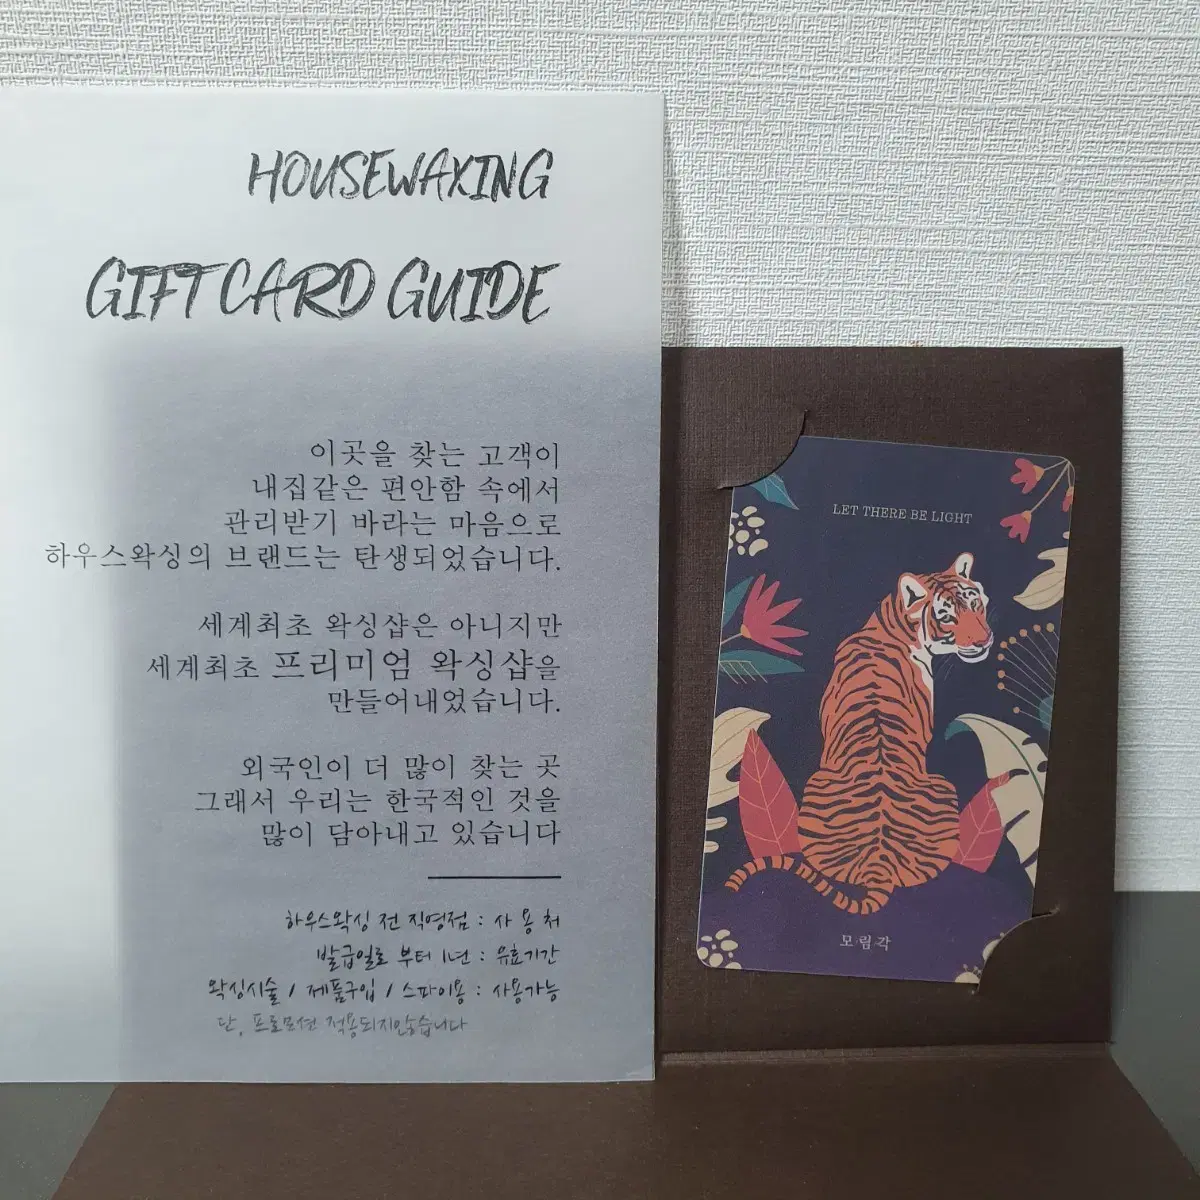 HOUSEWAXING
GIFT CARD GUIDE
이곳을 찾는 고객이
내집같은 편안함 속에서
관리받기 바라는 마음으로
하우스왁싱의 브랜드는 탄생되었습니다.
세계최초 왁싱샵은 아니지만
세계최초 프리미엄 왁싱샵을
만들어내었습니다.
외국인이 더 많이 찾는 곳
그래서 우리는 한국적인 것을
많이 담아내고 있습니다
하우스왁싱 전 직영점 : 사 용 처
발급일로 부터 1년 : 유효기간
왁싱시술 / 제품구입 / 스파이용 : 사용가능
단, 프로모션 적용되지않습니다
LET THERE BE LIGHT
모림각